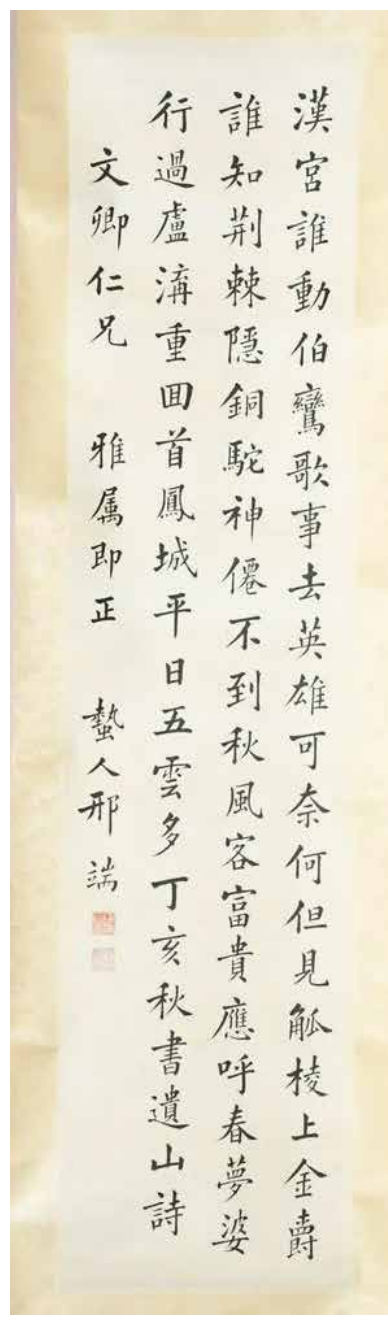 漢宮誰動伯鸞歌事去英雄可奈何但見觚棱上金爵
誰知荆棘隱銅駝神僊不到秋風客富貴應呼春夢婆
行過盧溝重囬首鳳城平日五雲多丁亥秋書遺山詩
文卿仁兄 雅属即正 蟄人邢端